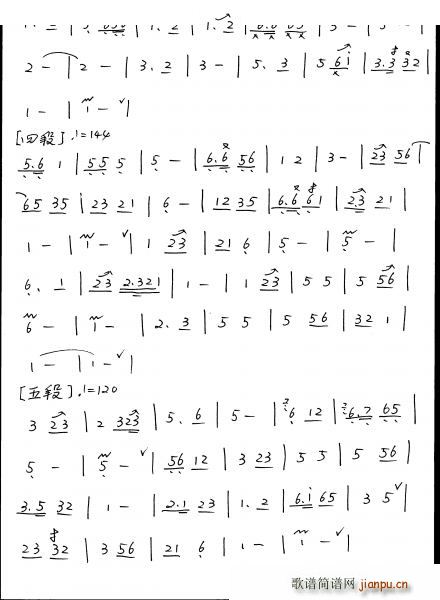 2 - | 2 - | 3. 2 | 3 - | 5. 3 | 5 6i | 3.3 32 |
1 - | 1 - ∨ |
[四段] ♩=144
5.6 1 | 55 5 | 5 - | 6.6 56 | 1 2 | 3 - | 23 56 |
65 35 | 23 21 | 6 - | 12 35 | 6.6 61 | 23 21 |
1 - | 1 - ∨ | 1 23 | 21 6 | 5 - | 5 - |
6. 1 | 23 2.321 | 1 - | 1 23 | 5 5 | 5 56 |
6 - | 1 - | 2. 3 | 5 5 | 5 56 | 32 1 |
1 - | 1 - ∨ |
[五段] ♩=120
3 23 | 2 323 | 5. 6 | 5 - | 6 12 | 6.7 65 |
5 - | 5 - ∨ | 56 12 | 3 23 | 5 5 | 5 56 |
3.5 32 | 1 - | 2.1 23 | 1. 2 | 6.i 65 | 3 5 ∨ |
23 32 | 3 56 | 21 6 | 1 - | 1 - ∨ |
歌谱简谱网
jianpu.cn